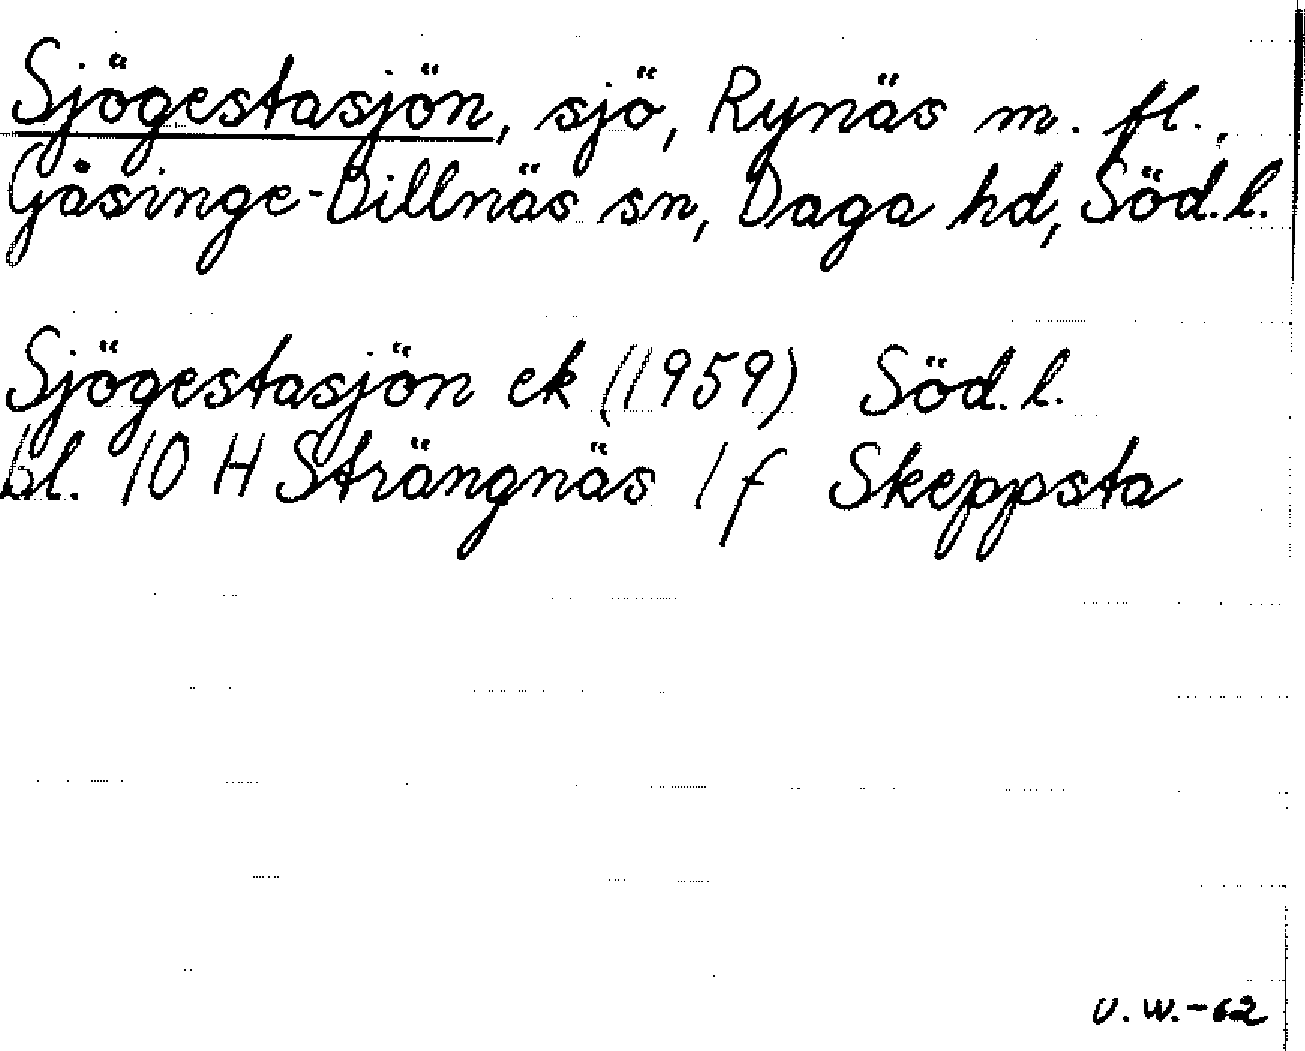 Sjögestasjön, sjö, Rynäs m. fl.,
Gåsinge-Dillnäs sn, Daga hd, Söd.l.
Sjögestasjön ek (1959) Söd.l.
bl. 10 H Strängnäs 1 f Skeppsta
U.W.-62